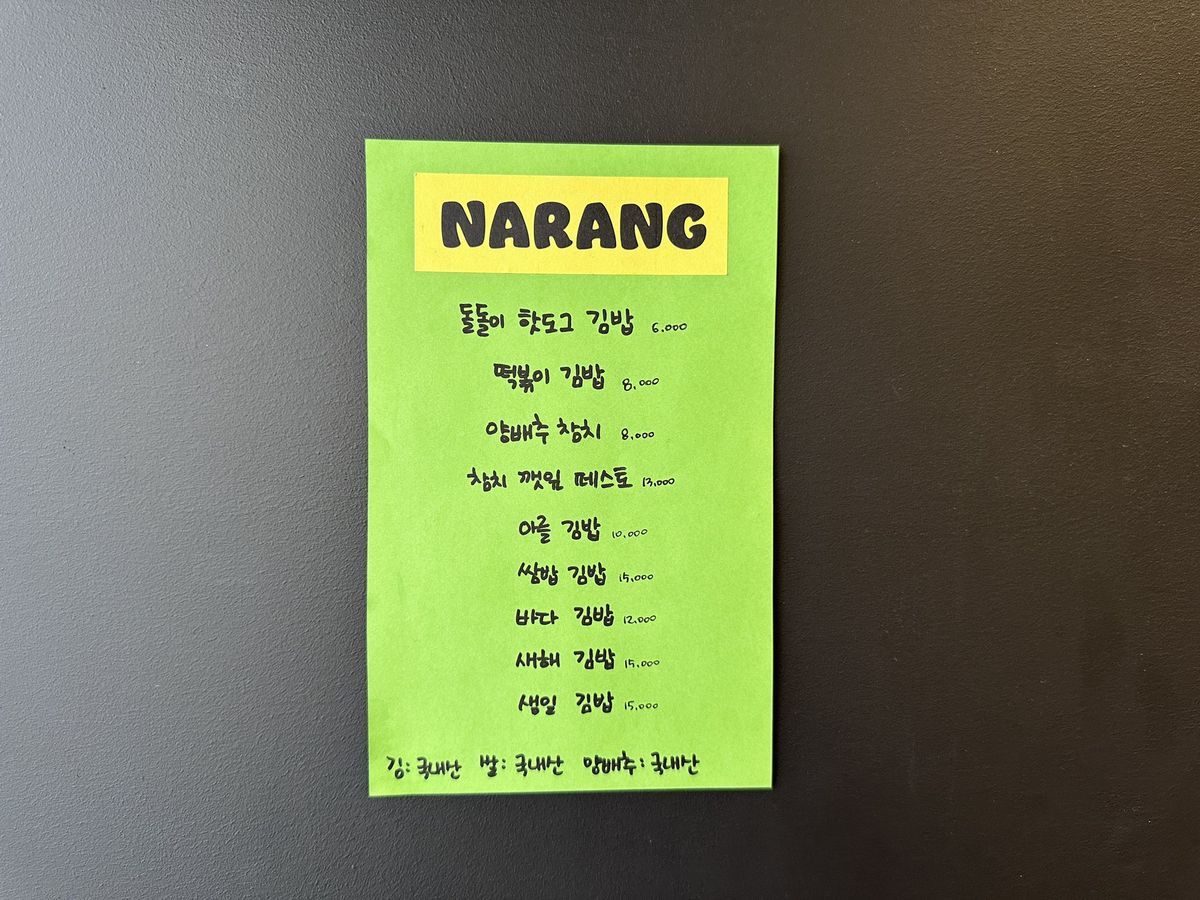 NARANG
돌돌이 핫도그 김밥 6,000
떡볶이 김밥 8,000
양배추 참치 8,000
참치 깻잎 페스토 13,000
아를 김밥 10,000
쌈밥 김밥 15,000
바다 김밥 12,000
새해 김밥 15,000
생일 김밥 15,000
김: 국내산 쌀: 국내산 양배추: 국내산